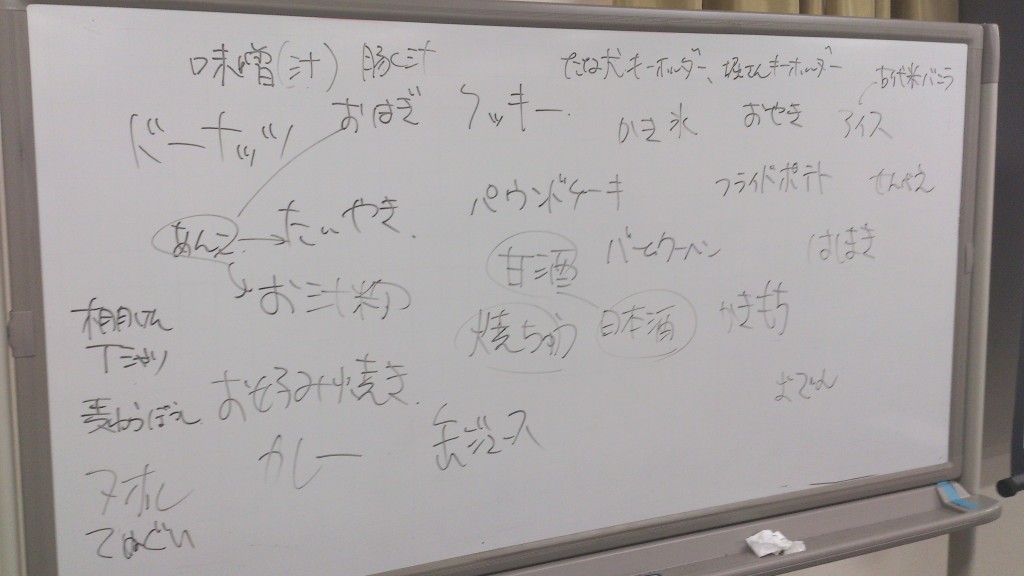 味噌(汁) 豚汁
キーホルダー、キーホルダー
古代米バニラ
おはぎ クッキー
かき氷 おやき アイス
ドーナッツ
パウンドケーキ フライドポテト せんべえ
あんこ たいやき
甘酒 バームクーヘン はしまき
お汁粉
焼ちゅう 日本酒 やきもち
Tシャツ
おこのみ焼き おでん
麦わらぼうし
カレー 缶ジュース
タオル
てぬぐい